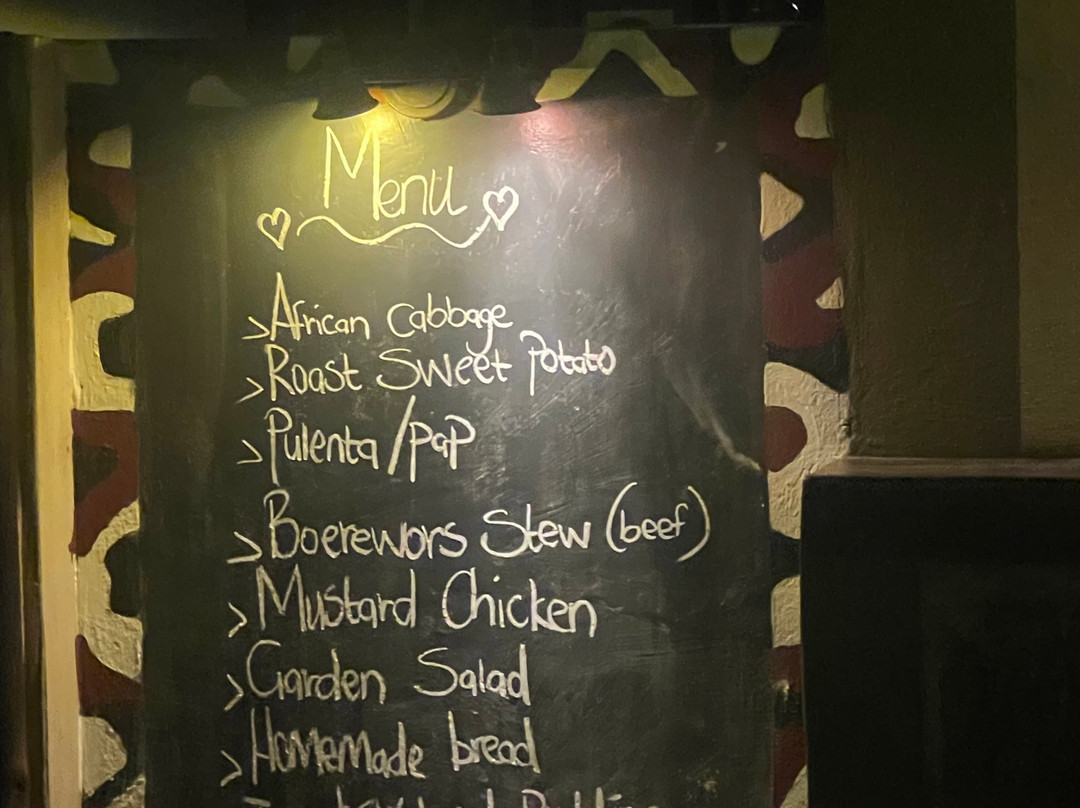 Menu
> African Cabbage
> Roast Sweet Potato
> Pulenta/pap
> Boerewors Stew (beef)
> Mustard Chicken
> Garden Salad
> Homemade bread